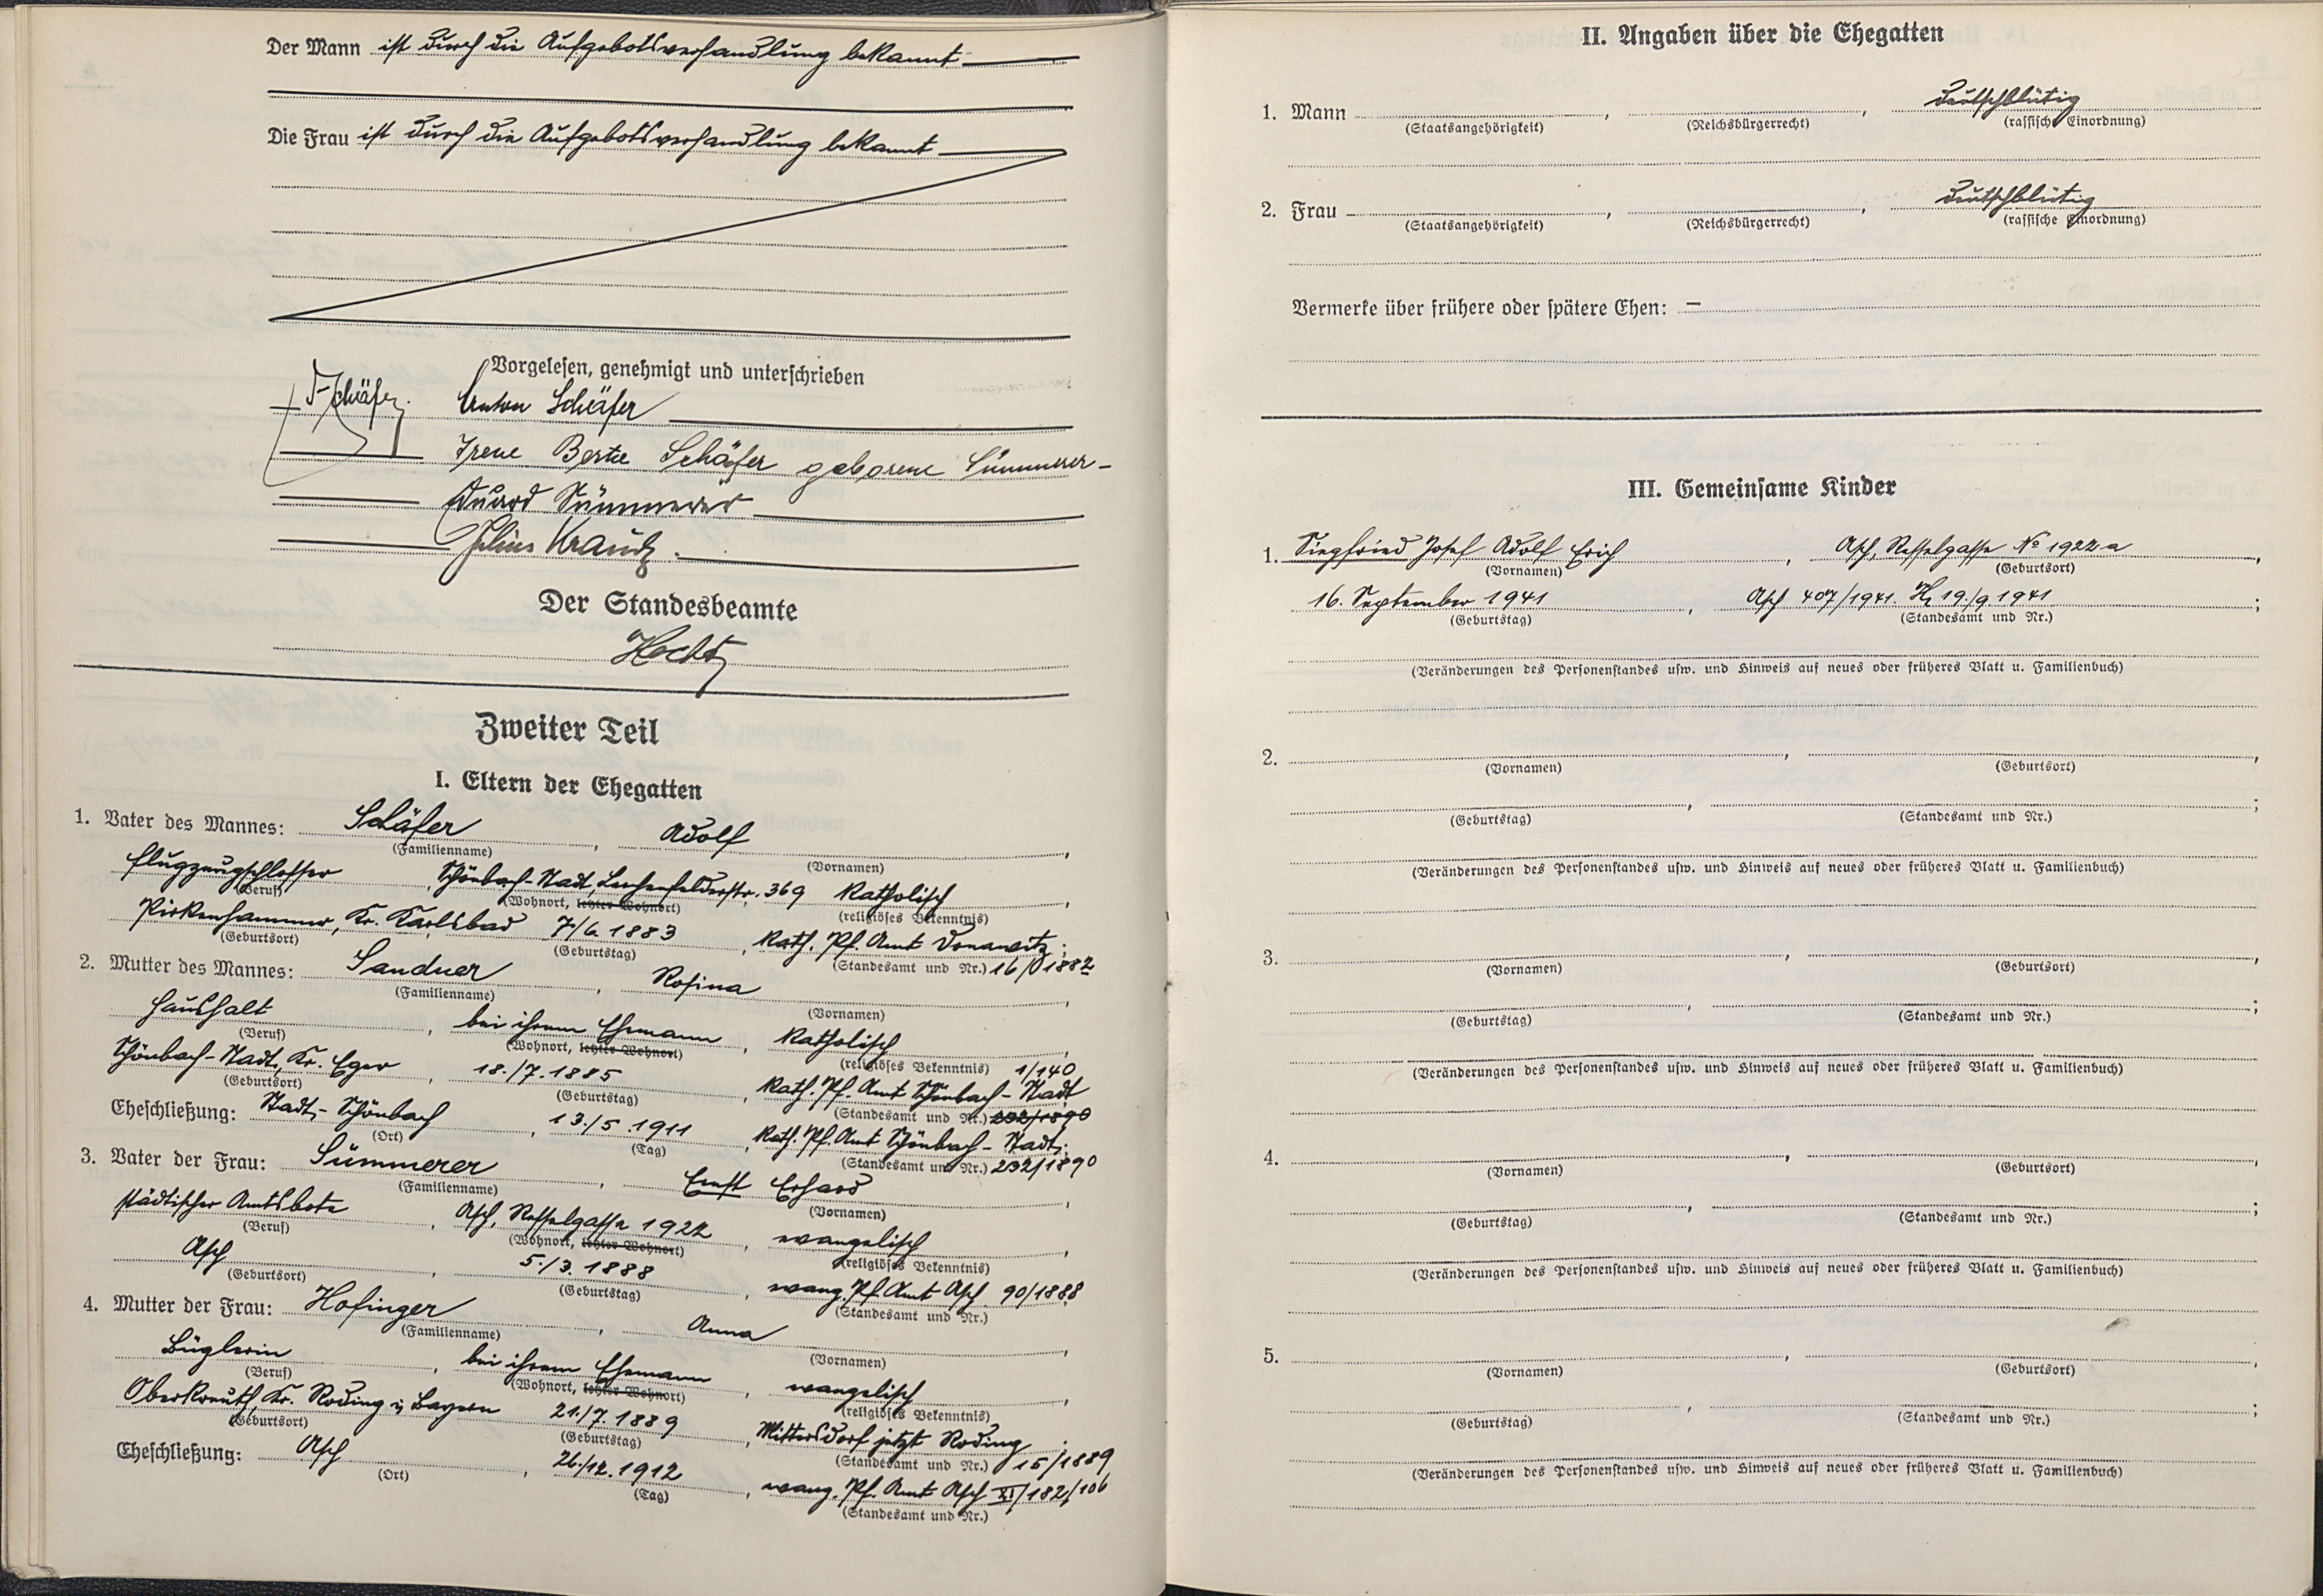 Der Mann ist durch die Aufgebotsverhandlung bekannt
Die Frau ist durch die Aufgebotsverhandlung bekannt
Vorgelesen, genehmigt und unterschrieben
Schäfer. Anton Schäfer
Irene Berta Schäfer geborene Sümmerer
Eduard Sümmerer
Julius
Der Standesbeamte
Zweiter Teil
I. Eltern der Ehegatten
1. Vater des Mannes: Schäfer, Adolf,
(Familienname) (Vornamen)
Flugzeugschlosser, Schönbach-Stadt, 369 katholisch,
(Beruf) (Wohnort, letzter Wohnort) (religiöses Bekenntnis)
Pirkenhammer, Kr. Karlsbad 7./6. 1883, Kath. Pf. Amt Donawitz;
(Geburtsort) (Geburtstag) (Standesamt und Nr.) 1882
2. Mutter des Mannes: Sandner, Rosina,
(Familienname) (Vornamen)
Haushalt, bei ihrem Ehemann, katholisch,
(Beruf) (Wohnort, letzter Wohnort) (religiöses Bekenntnis) 1/140
Schönbach-Stadt, Kr. Eger, 18./7. 1885, Kath. Pf. Amt Schönbach-Stadt
(Geburtsort) (Geburtstag) (Standesamt und Nr.) 232/1890
Eheschließung: Stadt-Schönbach, 13./5. 1911, Kath. Pf. Amt Schönbach-Stadt;
(Ort) (Tag) (Standesamt und Nr.) 232/1890
3. Vater der Frau: Sümmerer, Ernst Erhard,
(Familienname) (Vornamen)
städtischer Amtsbote, Asch, Rosselgasse 1922, evangelisch,
(Beruf) (Wohnort, letzter Wohnort) (religiöses Bekenntnis)
Asch, 5./3. 1888, evang. Pf. Amt Asch 90/1888;
(Geburtsort) (Geburtstag) (Standesamt und Nr.)
4. Mutter der Frau: Hofinger, Anna,
(Familienname) (Vornamen)
Büglerin, bei ihrem Ehemann, evangelisch,
(Beruf) (Wohnort, letzter Wohnort) (religiöses Bekenntnis)
Oberkreuth, Kr. Roding i. Bayern 21./7. 1889, Mittersdorf jetzt Roding;
(Geburtsort) (Geburtstag) (Standesamt und Nr.) 15/1889
Eheschließung: Asch, 26./12. 1912, evang. Pf. Amt Asch XI/182/106
(Ort) (Tag) (Standesamt und Nr.)
II. Angaben über die Ehegatten
1. Mann, , deutschblütig
(Staatsangehörigkeit) (Reichsbürgerrecht) (rassische Einordnung)
2. Frau, , deutschblütig
(Staatsangehörigkeit) (Reichsbürgerrecht) (rassische Einordnung)
Vermerke über frühere oder spätere Ehen: –
III. Gemeinsame Kinder
1. Siegfried Josef Adolf Erich, Asch, Rosselgasse No 1922 a,
(Vornamen) (Geburtsort)
16. September 1941, Asch 407/1941. 19./9. 1941;
(Geburtstag) (Standesamt und Nr.)
(Veränderungen des Personenstandes usw. und Hinweis auf neues oder früheres Blatt u. Familienbuch)
2. , ,
(Vornamen) (Geburtsort)
, ;
(Geburtstag) (Standesamt und Nr.)
(Veränderungen des Personenstandes usw. und Hinweis auf neues oder früheres Blatt u. Familienbuch)
3. , ,
(Vornamen) (Geburtsort)
, ;
(Geburtstag) (Standesamt und Nr.)
(Veränderungen des Personenstandes usw. und Hinweis auf neues oder früheres Blatt u. Familienbuch)
4. , ,
(Vornamen) (Geburtsort)
, ;
(Geburtstag) (Standesamt und Nr.)
(Veränderungen des Personenstandes usw. und Hinweis auf neues oder früheres Blatt u. Familienbuch)
5. , ,
(Vornamen) (Geburtsort)
, ;
(Geburtstag) (Standesamt und Nr.)
(Veränderungen des Personenstandes usw. und Hinweis auf neues oder früheres Blatt u. Familienbuch)